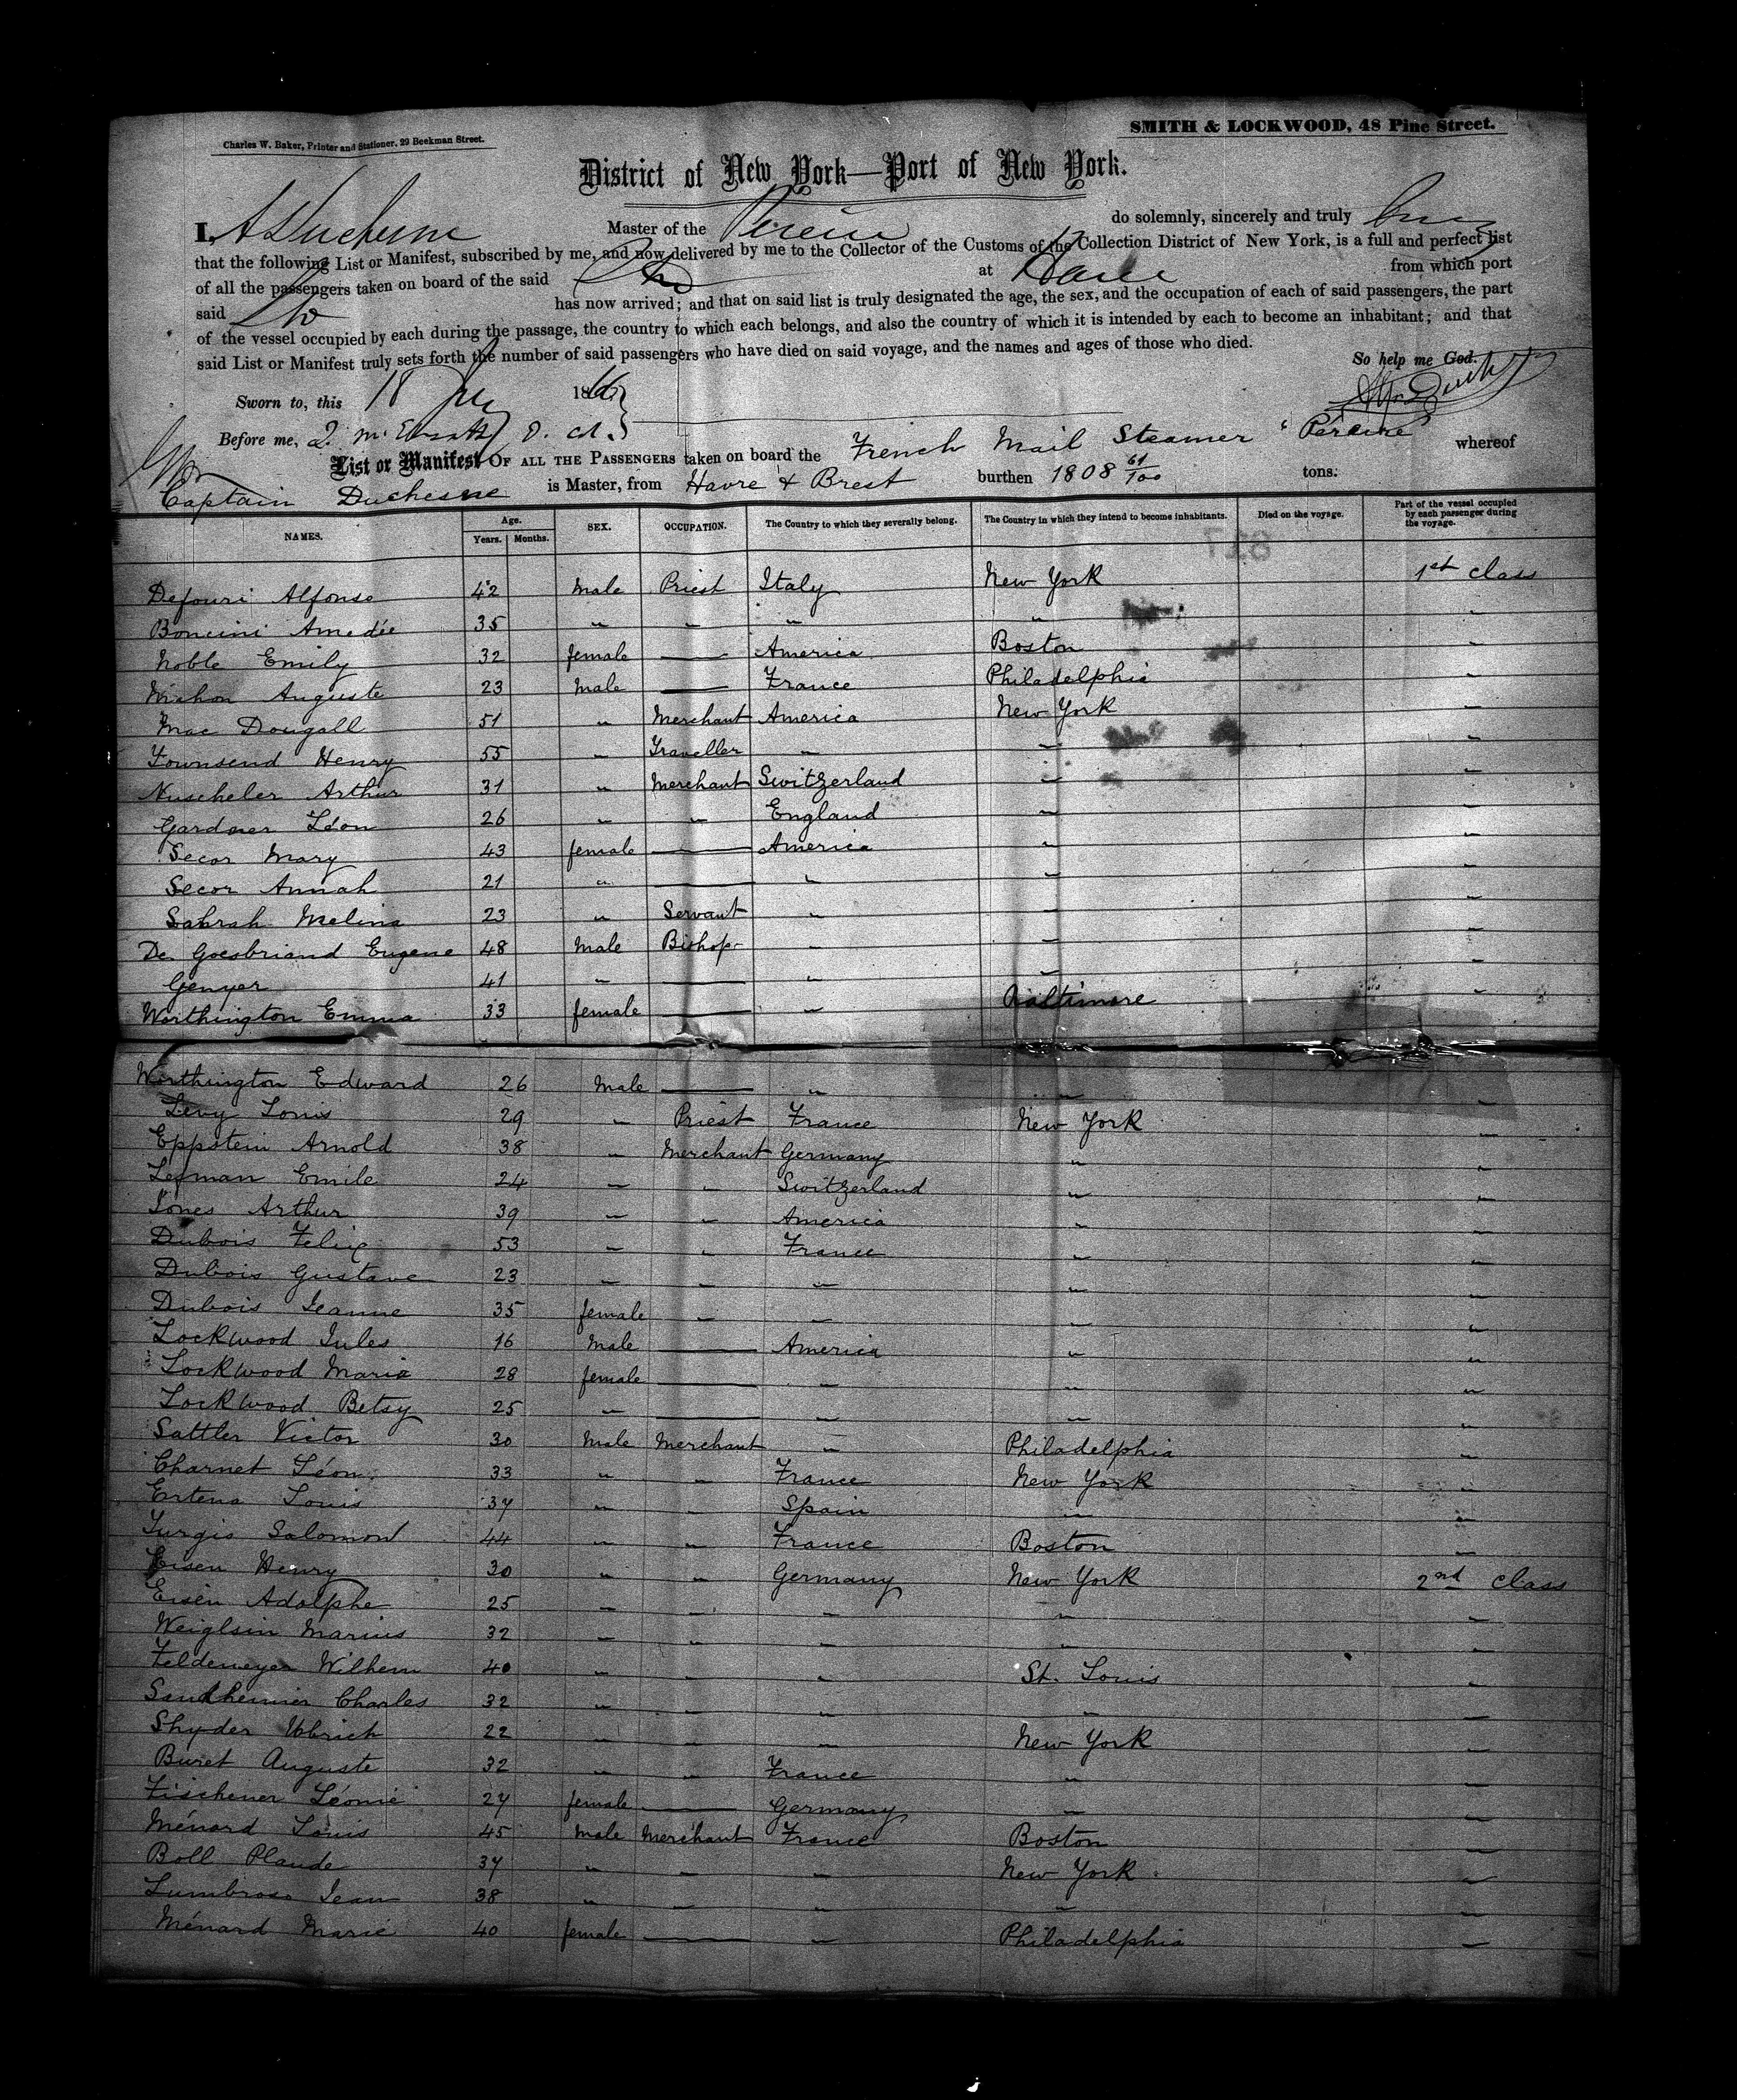 Charles W. Baker, Printer and Stationer, 29 Beekman Street.
SMITH & LOCKWOOD, 48 Pine Street.
District of New York—Port of New York.
I, A Duchesne Master of the Pereire do solemnly, sincerely and truly
that the following List or Manifest, subscribed by me, and now delivered by me to the Collector of the Customs of the Collection District of New York, is a full and perfect list
of all the passengers taken on board of the said at Havre from which port
said has now arrived; and that on said list is truly designated the age, the sex, and the occupation of each of said passengers, the part
of the vessel occupied by each during the passage, the country to which each belongs, and also the country of which it is intended by each to become an inhabitant; and that
said List or Manifest truly sets forth the number of said passengers who have died on said voyage, and the names and ages of those who died.
So help me God.
Sworn to, this 18 186
Before me,
List or Manifest OF ALL THE PASSENGERS taken on board the French Mail Steamer "Péreire" whereof
Captain Duchesne is Master, from Havre & Brest burthen 1808 61/100 tons.
NAMES. Age. Years. Months. SEX. OCCUPATION. The Country to which they severally belong. The Country in which they intend to become inhabitants. Died on the voyage. Part of the vessel occupied by each passenger during the voyage.
Defouri Alfonse 42 Male Priest Italy New York 1st class
Boncini Amedée 35 " " " " "
Noble Emily 32 female — America Boston "
Michon Auguste 23 Male — France Philadelphia "
Mac Dougall 51 " Merchant America New York "
Townsend Henry 55 " Traveller " " "
Nuscheler Arthur 31 " Merchant Switzerland " "
Gardner Léon 26 " " England " "
Secor Mary 43 female — America " "
Secor Annah 21 " — " " "
Sahrah Melina 23 " Servant " " "
De Goesbriand Eugene 48 Male Bishop " " "
Genyer 41 " — " " "
Worthington Emma 33 female — " Baltimore "
Worthington Edward 26 Male — " " "
Levy Louis 29 " Priest France New York "
Eppstein Arnold 38 " Merchant Germany " "
Lefman Emile 24 " " Switzerland " "
Jones Arthur 39 " " America " "
Dubois Felix 53 " " France " "
Dubois Gustave 23 " " " " "
Dubois Jeanne 35 female " " " "
Lockwood Jules 16 Male — America " "
Lockwood Maria 28 female — " " "
Lockwood Betsy 25 " — " " "
Sattler Victor 30 Male Merchant " Philadelphia "
Charnet Léon 33 " " France New York "
Ertena Louis 37 " " Spain " "
Turgis Salomon 44 " " France Boston "
Eisen Henry 30 " " Germany New York 2nd class
Eisen Adolphe 25 " " " " "
Weiglsin Marius 32 " " " " "
Feldemeyer Wilhem 40 " " " St. Louis "
Sandhemier Charles 32 " " " " "
Shyder Ulbrich 22 " " " New York "
Buret Auguste 32 " " France " "
Fischener Léonie 27 female — Germany " "
Ménard Louis 45 Male Merchant France Boston "
Boll Plaude 37 " " " New York "
Lumbroso Jean 38 " " " " "
Ménard Marie 40 female — " Philadelphia "